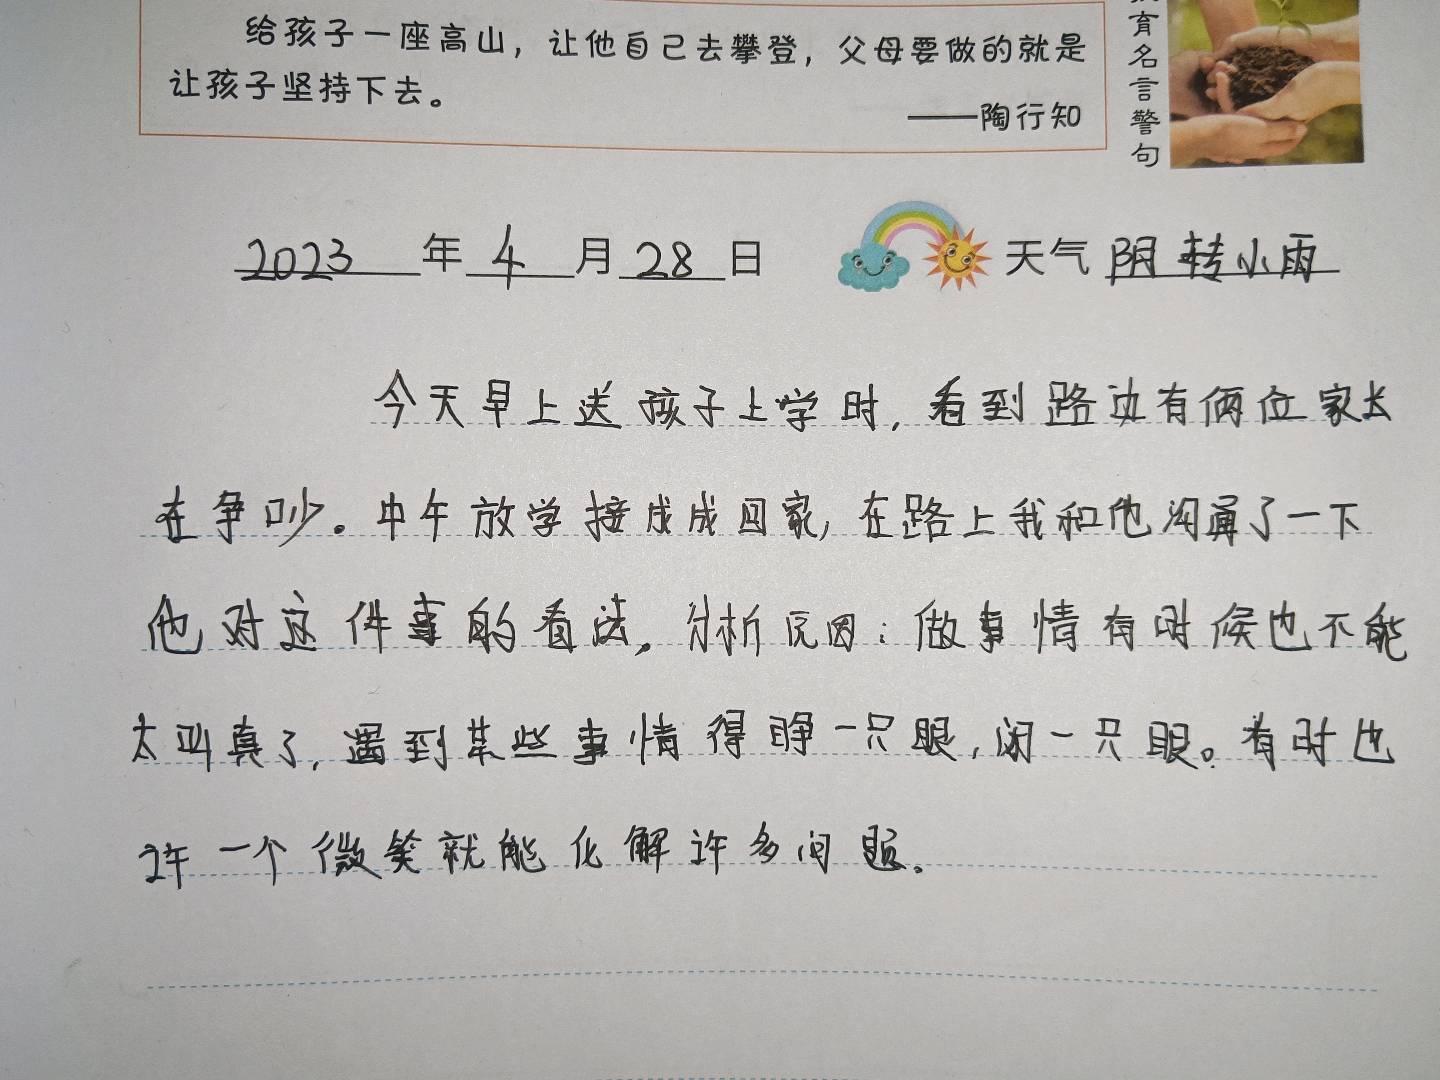 给孩子一座高山，让他自己去攀登，父母要做的就是
让孩子坚持下去。
——陶行知
育名言警句
2023年4月28日 天气 阴转小雨
今天早上送孩子上学时，看到路边有俩位家长
在争吵。中午放学接成成回家，在路上我和他沟通了一下
他对这件事的看法。分析原因：做事情有时候也不能
太叫真了，遇到某些事情得睁一只眼，闭一只眼。有时也
许一个微笑就能化解许多问题。